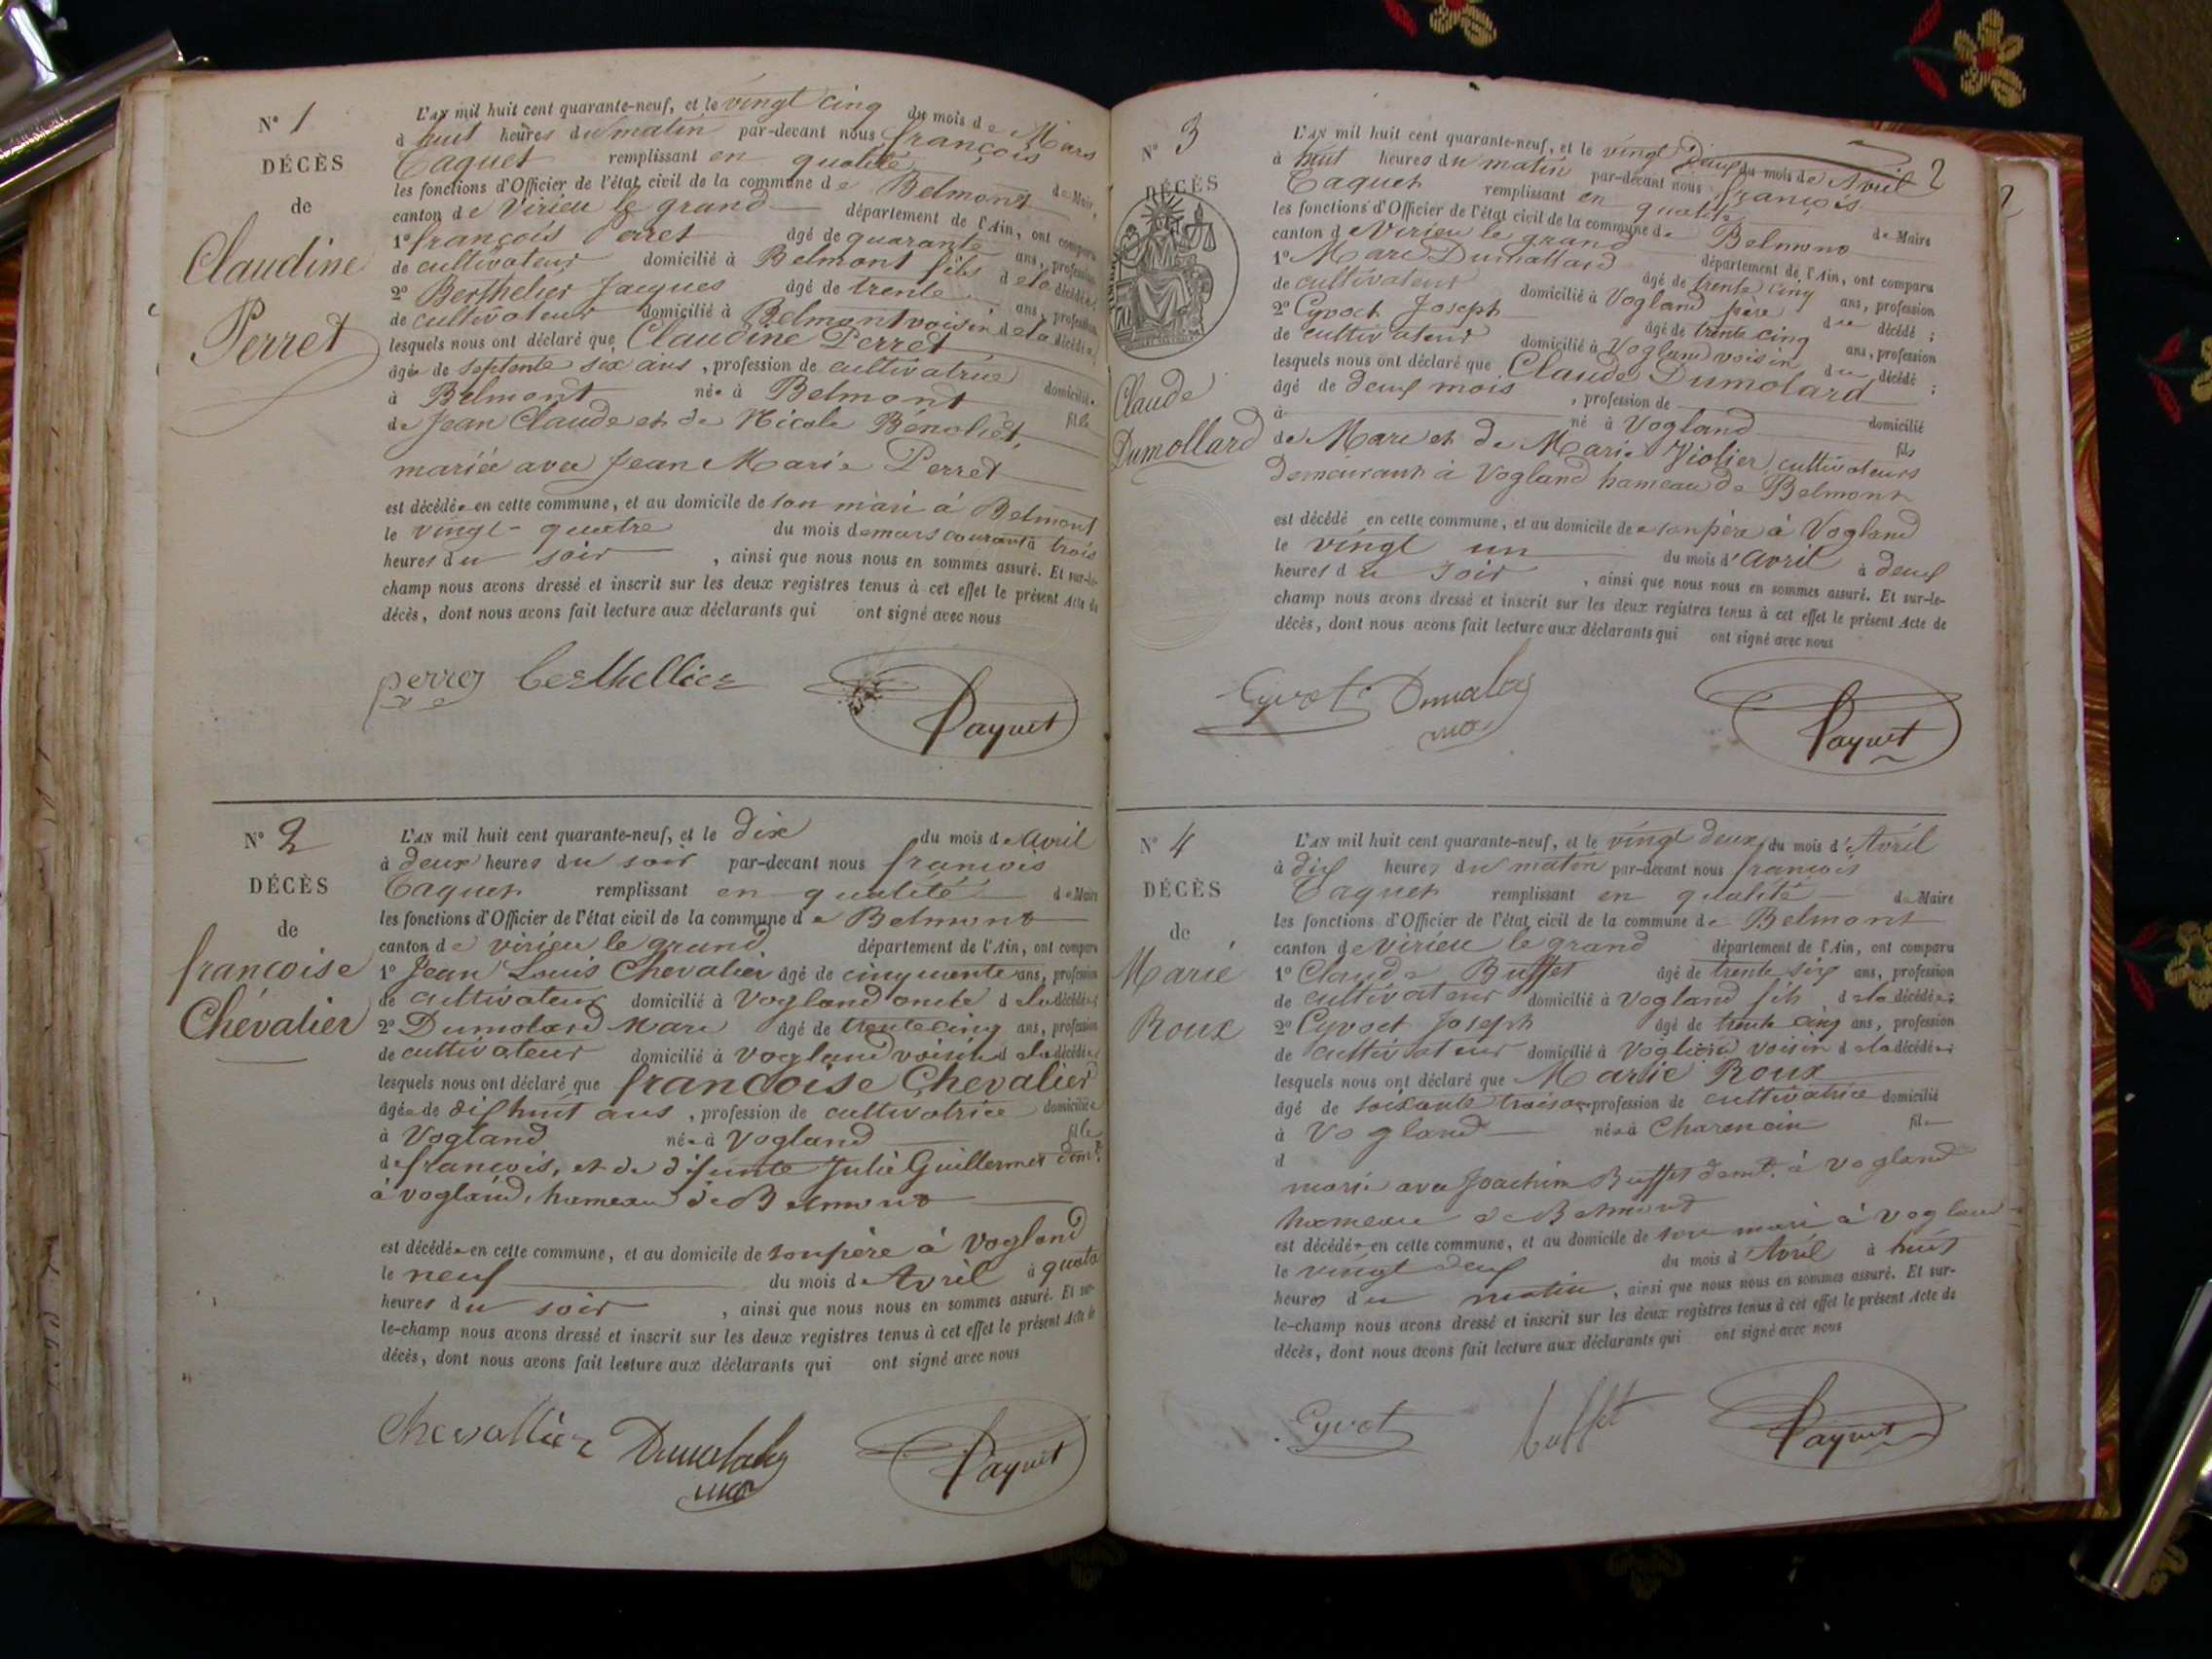 N° 1
DÉCÈS
de
Claudine
Perret
L'AN mil huit cent quarante-neuf, et le vingt cinq du mois de Mars
à huit heures du matin par-devant nous françois
Paquet remplissant en qualité de Maire
les fonctions d'Officier de l'état civil de la commune de Belmont
canton de Virieu le grand département de l'Ain, ont comparu
1° françois Perret âgé de quarante ans, profession
de cultivateur domicilié à Belmont fils de la décédée
2° Berthelier Jacques âgé de trente ans, profession
de cultivateur domicilié à Belmont voisin de la décédée
lesquels nous ont déclaré que Claudine Perret
âgée de septente six ans, profession de cultivatrice domiciliée
à Belmont née à Belmont fille
de Jean Claude et de Nicole Bénoliet,
mariée avec Jean Marie Perret
est décédée en cette commune, et au domicile de son mari à Belmont
le vingt-quatre du mois de mars courant à trois
heures du soir, ainsi que nous nous en sommes assuré. Et sur-le-
champ nous avons dressé et inscrit sur les deux registres tenus à cet effet le présent Acte de
décès, dont nous avons fait lecture aux déclarants qui ont signé avec nous
perret berthellier Paquet
N° 2
DÉCÈS
de
françoise
Chevalier
L'AN mil huit cent quarante-neuf, et le dix du mois de Avril
à deux heures du soir par-devant nous francois
Paquet remplissant en qualité de Maire
les fonctions d'Officier de l'état civil de la commune de Belmont
canton de virieu le grand département de l'Ain, ont comparu
1° Jean Louis Chevalier âgé de cinquente ans, profession
de cultivateur domicilié à Vogland oncle de la décédée
2° Dumolard Marc âgé de trente cinq ans, profession
de cultivateur domicilié à vogland voisin de la décédée
lesquels nous ont déclaré que francoise Chevalier
âgée de dix huit ans, profession de cultivatrice domiciliée
à Vogland née à Vogland fille
de francois, et de défunte Julie Guillermet demt.
à vogland, hameau de Belmont
est décédée en cette commune, et au domicile de son père à Vogland
le neuf du mois de Avril à quatre
heures du soir, ainsi que nous nous en sommes assuré. Et sur-
le-champ nous avons dressé et inscrit sur les deux registres tenus à cet effet le présent Acte de
décès, dont nous avons fait lecture aux déclarants qui ont signé avec nous
Chevallier Paquet
2
N° 3
DÉCÈS
Claude
Dumollard
L'AN mil huit cent quarante-neuf, et le vingt Deux du mois de Avril
à huit heures du matin par-devant nous françois
Paquet remplissant en qualité de Maire
les fonctions d'Officier de l'état civil de la commune de Belmont
canton de Virieu le grand département de l'Ain, ont comparu
1° Marc Dumollard âgé de trente cinq ans, profession
de cultivateur domicilié à Vogland père du décédé;
2° Cyvoct Joseph âgé de trente cinq ans, profession
de cultivateur domicilié à Vogland voisin du décédé;
lesquels nous ont déclaré que Claude Dumolard
âgé de deux mois, profession de
à né à Vogland domicilié
de Marc et de Marie Violier cultivateurs fils
Demeurant à Vogland hameau de Belmont
est décédé en cette commune, et au domicile de son père à Vogland
le vingt un du mois d'avril à deux
heures du soir, ainsi que nous nous en sommes assuré. Et sur-le-
champ nous avons dressé et inscrit sur les deux registres tenus à cet effet le présent Acte de
décès, dont nous avons fait lecture aux déclarants qui ont signé avec nous
Cyvot Paquet
N° 4
DÉCÈS
de
Marie
Roux
L'AN mil huit cent quarante-neuf, et le vingt deux du mois d'Avril
à dix heures du matin par-devant nous francois
Paquet remplissant en qualité de Maire
les fonctions d'Officier de l'état civil de la commune de Belmont
canton de Virieu le grand département de l'Ain, ont comparu
1° Claude Buffet âgé de trente six ans, profession
de cultivateur domicilié à Vogland fils de la décédée;
2° Cyvoct Joseph âgé de trente cinq ans, profession
de cultivateur domicilié à Vogland voisin de la décédée;
lesquels nous ont déclaré que Marie Roux
âgé de soixante trois ans profession de cultivatrice domicilié
à Vogland née à Charencin fille
d
marié avec Joachim Buffet demt. à vogland
hameau de Belmont
est décédée en cette commune, et au domicile de son mari à vogland
le vingt deux du mois d'Avril à huit
heures du matin, ainsi que nous nous en sommes assuré. Et sur-
le-champ nous avons dressé et inscrit sur les deux registres tenus à cet effet le présent Acte de
décès, dont nous avons fait lecture aux déclarants qui ont signé avec nous
Cyvot buffet Paquet